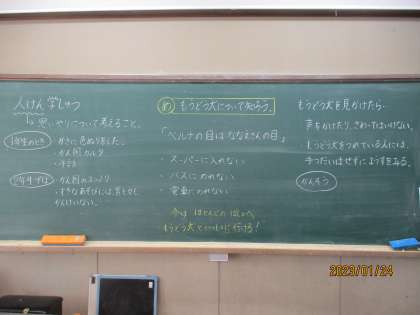 人けん学しゅう
思いやりについて考えること。
1年生のとき
・かさに色ぬりをした。
・かん例カルタ
2年生では
かんけいない。
め もうどう犬について知ろう。
「ベルナの目はななえさんの目」
・スーパーに入れない
・バスにのれない
・電車にのれない
今は ほとんどの
もうどう犬といっしょに行ける!
もうどう犬を見かけたら…
声をかけたり、さわったりはいけない。
もうどう犬をつれている人には、
手つだいはせずにようすをみる。
かんそう
2023/01/24